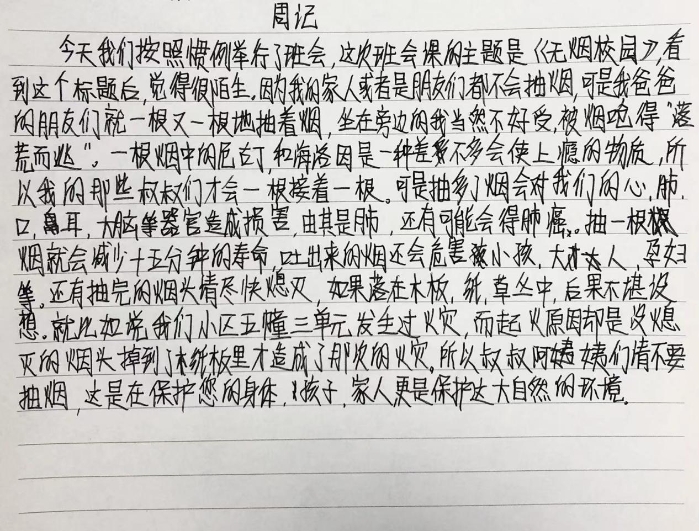 周记
今天我们按照惯例举行了班会,这次班会课的主题是《无烟校园》,看
到这个标题后,觉得很陌生。因为我的家人或者是朋友们都不会抽烟,可是我爸爸
的朋友们就一根又一根地抽着烟,坐在旁边的我当然不好受,被烟呛得“落
荒而逃”。一根烟中的尼古丁,和海洛因是一种差不多会使上瘾的物质,所
以我的那些叔叔们才会一根接着一根。可是抽多了烟会对我们的心,肺,
口,鼻耳,大脑等器官造成损害,由其是肺,还有可能会得肺癌。抽一根
烟就会减少十五分钟的寿命,吐出来的烟还会危害小孩,大人,孕妇
等。还有抽完的烟头请尽快熄灭,如果落在木板,纸,草丛中,后果不堪设
想。就比如说我们小区五幢三单元发生过火灾,而起火原因却是没熄
灭的烟头掉到了木纸板里才造成了那次的火灾。所以叔叔阿姨们请不要
抽烟,这是在保护您的身体,孩子,家人,更是保护这大自然的环境。